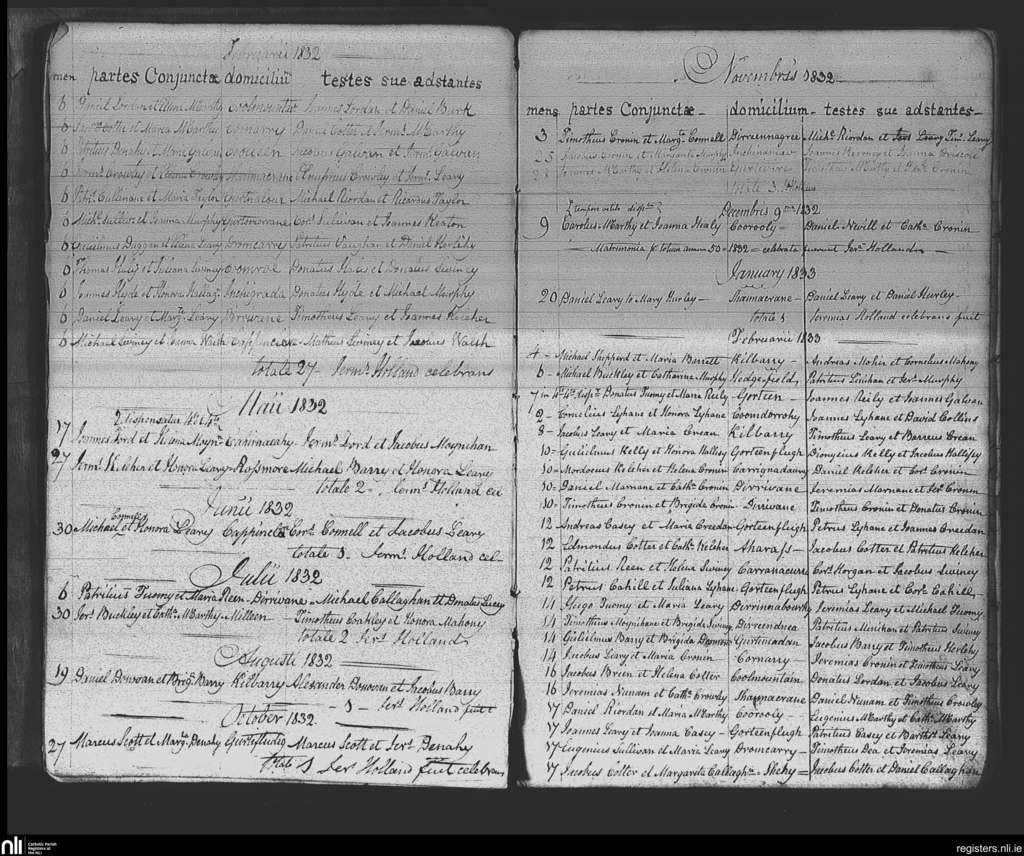 Februarii 1832
men partes Conjunctæ domicilium testes sue adstantes
6 Daniel Lordan et Ellena McCarthy Coolnsuntain Joannes Lordan et Daniel Burk
6 Cotter et Maria McCarthy Cornarry Daniel Cotter et Jerms. McCarthy
6 Patritius Denahy et Maria Galvin Jacobus Galvin et Galvin
6 Jerms. Crowley et Crowley Shannacrane Crowley et Jerms. Leary
6 Patt. Cullinane et Maria Taylor Gortnacour Michael Riordan et Ricardus Taylor
6 Mich. Sullivan et Joanna Murphy Gortsmorane Corls. Sullivan et Joannes Keaton
6 Gulielmus Duggan et Ellena Leary Dromcarry Patritius Vaughan et Daniel Herlihy
6 Thomas Haly et Juliana Sweney Donatus Hales et Donatus Sweney
6 Joannes Hyde et Honora Inchigrada Donatus Hyde et Michael Murphy
6 Daniel Leary et Margt. Leary Dirrivane Timotheus Leary et Joannes Kelcher
6 Michael Sweney et Joanna Walsh Cappinclare Matheus Sweney et Jacobus Walsh
totale 27 Jerms. Holland celebrans
Maii 1832
dispensatus 4t. 4ta.
17 Joannes Lord et Juliana Moyn. Cahirnacahy Jerms. Lord et Jacobus Moynihan
27 Jerms. Kelcher et Honora Leary Rossmore Michael Barry et Honora Leary
totale 2 Jerms. Holland cel
Junii 1832
30 Michael Connell et Honora Leary Cappinclare Cors. Connell et Jacobus Leary
totale 1. Jerms. Holland cel
Julii 1832
6 Patritius Twomy et Maria Reen Dirrivane Michael Callaghan et Donatus Lucey
30 Jers. Buckley et Cathe. McCarthy Milleen Timotheus Coakley et Honora Mahony
totale 2 Jers. Holland
Augusti 1832
19 Daniel Donovan et Brigt. Barry Kilbarry Alexander Donovan et Jacobus Barry
1 Jers. Holland fuit
October 1832
27 Marcus Scott et Margt. Denahy Marcus Scott et Jers. Denahy
totale 1 Jers. Holland fuit celebrans
Novembris 1832
mens partes Conjunctæ domicilium testes sue adstantes
3 Timotheus Cronin et Margt. Connell Dirreennagree Michl. Riordan et Leary Tims. Leary
25 Jacobus Cronin et Margarita Murphy Inchinaniav Joannes Kerney et Joanna Driscole
28 Joannes McCarthy et Helena Cronin Gurteenre Timotheus McCarthy et Cronin
totale 3
Decembris 9no 1832
9 Carolus McCarthy et Joanna Healy Coorooly Daniel Nevill et Cathe. Cronin
Matrimonia p totum annum 50 1832 celebrata fuerunt Jers. Holland
January 1833
20 Daniel Leary to Mary Hurley Shannacrane Daniel Leary et Daniel Hurley
totale 1 Jeremias Holland celebrans fuit
Februarii 1833
4 Michael Shepperd et Maria Burrett Kilbarry Andreas Mahin et Cornelius Mahony
6 Michael Buckley et Catharina Murphy Hedgefield Patritius Linihan et Jers. Murphy
7 in 4t. 4ta. dispt. Donatus Twomy et Maria Reily Gorteen Joannes Reily et Joannes Galvan
2 Cornelius Lyhane et Honora Lyhane Coomdorrohy Joannes Lyhane et David Collins
8 Jacobus Leary et Maria Crean Kilbarry Timotheus Leary et Barreus Crean
10 Gulielmus Kelly et Honora Hallisy Gorteenfligh Dionysius Kelly et Jacobus Hallissy
10 Mordoeus Kelcher et Helena Cronin Carrignadaury Daniel Kelcher et Cors. Cronin
10 Daniel Marnane et Cathe. Cronin Dirrivane Jeremias Marnane et Jers. Cronin
10 Timotheus Cronin et Brigida Cronin Dirrivane Timotheus Cronin et Donatus Cronin
12 Andreas Casey et Maria Creedan Gorteenfligh Petrus Lyhane et Joannes Creedan
12 Edmondus Cotter et Cathe. Kelcher Aharass Jacobus Cotter et Patritius Kelcher
12 Patritius Reen et Helena Sweney Carranacure Cors. Horgan et Jacobus Sweney
12 Petrus Cahill et Juliana Lyhane Gorteenfligh Petrus Lyhane et Cors. Cahill
14 Hugo Twomy et Maria Leary Derrinnabourky Jeremias Leary et Michael Twomy
14 Timotheus Moynihane et Brigida Sweney Dirreendrea Patritius Minihan et Patritius Sweney
14 Gulielmus Barry et Brigida Gurteenadan Jacobus Barry et Timotheus Herlihy
14 Jacobus Leary et Maria Cronin Cornarry Jeremias Cronin et Timotheus Leary
16 Jacobus Breen et Helena Cotter Coolmountain Donatus Lordan et Jacobus Leary
16 Jeremias Nunam et Cathe. Crowley Shannacrane Daniel Nunam et Timotheus Crowley
17 Daniel Riordan et Maria McCarthy Coorooly Eugenius McCarthy et Cathe. McCarthy
17 Joannes Leary et Joanna Casey Gorteenfligh Patritius Casey et Bartht. Leary
17 Eugenius Sullivan et Maria Leary Dromcarry Timotheus Dea et Jeremias Leary
17 Jacobus Cotter et Margarita Callaghn. Shehy Jacobus Cotter et Daniel Callaghan
nli
Catholic Parish
Registers at
the NLI
registers.nli.ie